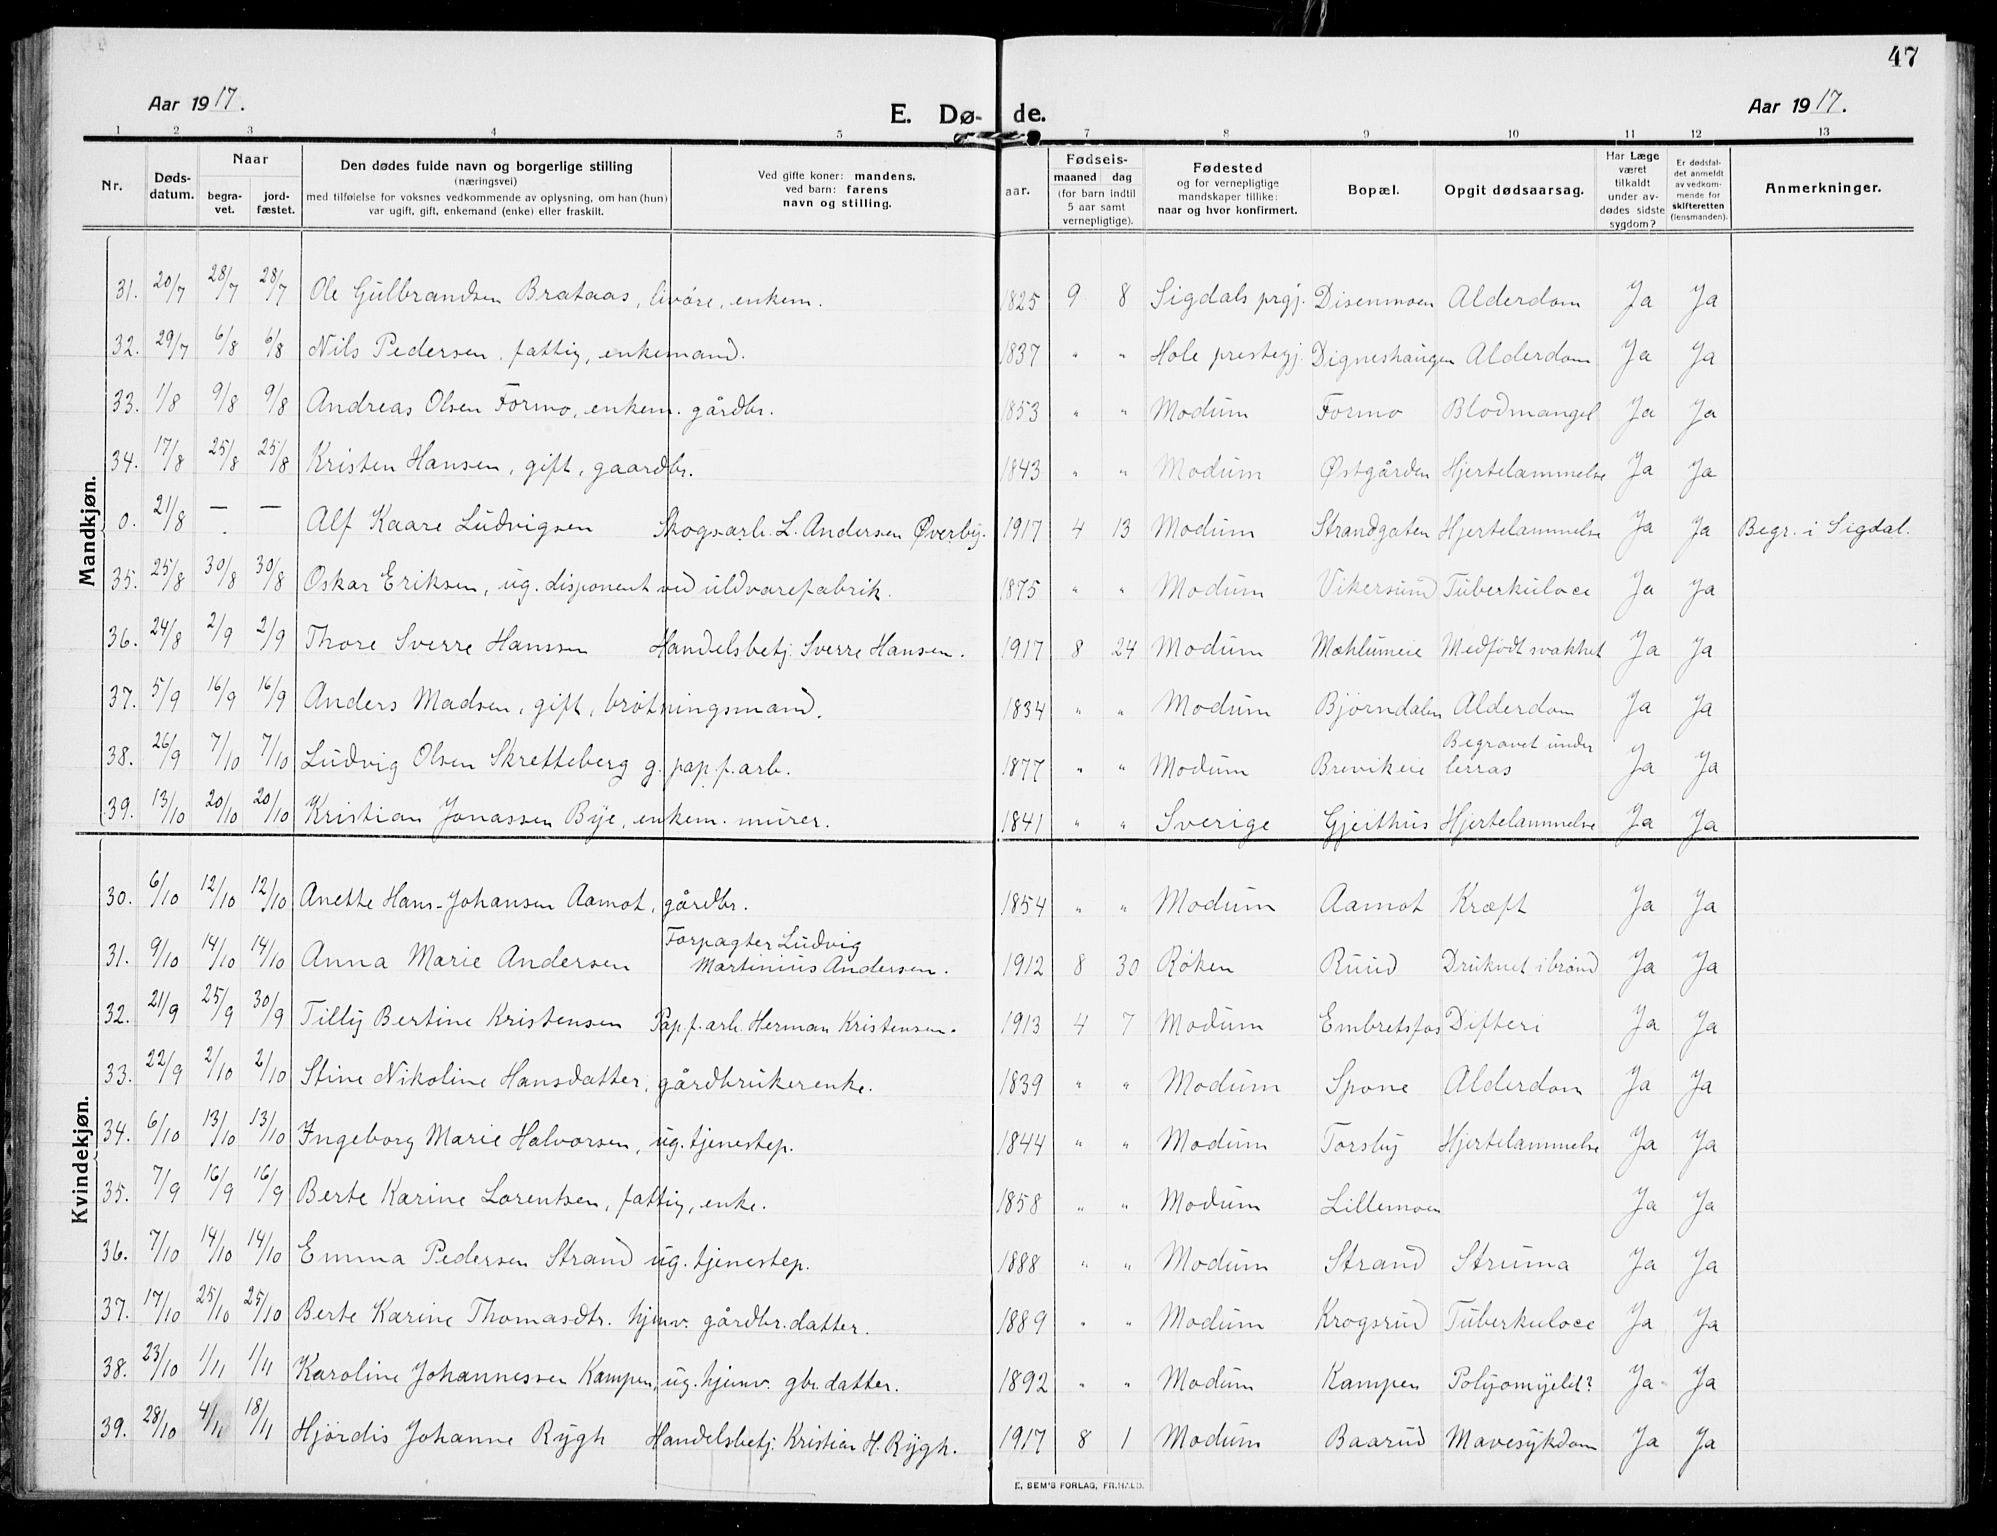 47
Aar 1917.
E. Døde.
Aar 1917.
1 2 3 4 5 7 8 9 10 11 12 13
Nr. Døds-datum. Naar begravet. jordfæstet. Den dødes fulde navn og borgerlige stilling (næringsvei) med tilføielse for voksnes vedkommende av oplysning, om han (hun) var ugift, gift, enkemand (enke) eller fraskilt. Ved gifte koner: mandens, ved barn: farens navn og stilling. aar. Fødseis- maaned dag (for barn indtil 5 aar samt vernepligtige). Fødested og for vernepligtige mandskaper tillike: naar og hvor konfirmert. Bopæl. Opgit dødsaarsag. Har Læge været tilkaldt under avdødes sidste sygdom? Er dødsfaldet anmeldt av vedkommende for skifteretten (lensmanden). Anmerkninger.
Mandkjøn.
31. 20/7 28/7 28/7 Ole Gulbrandsen Brataas, livøre, enkem. 1825 9 8 Sigdals prgj. Disenmoen Alderdom Ja Ja
32. 29/7 6/8 6/8 Nils Pedersen, fattig, enkemand. 1837 " " Hole prestegj. Digneshaugen Alderdom Ja Ja
33. 1/8 9/8 9/8 Andreas Olsen Formo, enkem. gårdbr. 1853 " " Modum Formo Blodmangel Ja Ja
34. 17/8 25/8 25/8 Kristen Hansen, gift, gaardbr. 1843 " " Modum Østgården Hjertelammelse Ja Ja
0. 21/8 — — Alf Kaare Ludvigsen Skogsarb. L. Andersen Øverby. 1917 4 13 Modum Strandgaten Hjertelammelse Ja Ja Begr. i Sigdal.
35. 25/8 30/8 30/8 Oskar Eriksen, ug. disponent ved uldvarefabrik. 1875 " " Modum Vikersund Tuberkuloce Ja Ja
36. 24/8 2/9 2/9 Thore Sverre Hanssen Handelsbetj. Sverre Hansen. 1917 8 24 Modum Mæhlumeie Medfødt svakhet Ja Ja
37. 5/9 16/9 16/9 Anders Madsen, gift, brøtningsmand. 1834 " " Modum Bjørndalen Alderdom Ja Ja
38. 26/9 7/10 7/10 Ludvig Olsen Skretteberg g. pap.f.arb. 1877 " " Modum Brevikeie Begravet under lerras Ja Ja
39. 13/10 20/10 20/10 Kristian Jonassen Bye, enkem. murer. 1841 " " Sverige Gjeithus Hjertelammelse Ja Ja
Kvindekjøn.
30. 6/10 12/10 12/10 Anette Hans-Johansen Aamot, gårdbr. 1854 " " Modum Aamot Kræft Ja Ja
31. 9/10 14/10 14/10 Anna Marie Andersen Forpagter Ludvig Martinius Andersen. 1912 8 30 Røken Ruud Druknet i brønd Ja Ja
32. 21/9 25/9 30/9 Tilly Bertine Kristensen Pap.f.arb. Herman Kristensen. 1913 4 7 Modum Embretsfos Difteri Ja Ja
33. 22/9 2/10 2/10 Stine Nikoline Hansdatter, gårdbrukerenke. 1839 " " Modum Spone Alderdom Ja Ja
34. 6/10 13/10 13/10 Ingeborg Marie Halvorsen, ug. tjenestep. 1844 " " Modum Torsby Hjertelammelse Ja Ja
35. 7/9 16/9 16/9 Berte Karine Lorentsen, fattig, enke. 1858 " " Modum Lillemoen Ja Ja
36. 7/10 14/10 14/10 Emma Pedersen Strand ug. tjenestep. 1888 " " Modum Strand Struma Ja Ja
37. 17/10 25/10 25/10 Berte Karine Thomasdtr. hjemv. gårdbr.datter. 1889 " " Modum Krogsrud Tuberkuloce Ja Ja
38. 23/10 1/11 1/11 Karoline Johannessen Kampen, ug. hjemv. gbr.datter. 1892 " " Modum Kampen Polyomyelet? Ja Ja
39. 28/10 4/11 18/11 Hjørdis Johanne Rygh Handelsbetj. Kristian H. Rygh. 1917 8 1 Modum Baarud Mavesykdom Ja Ja
E. SEM'S FORLAG, FR.HALD.